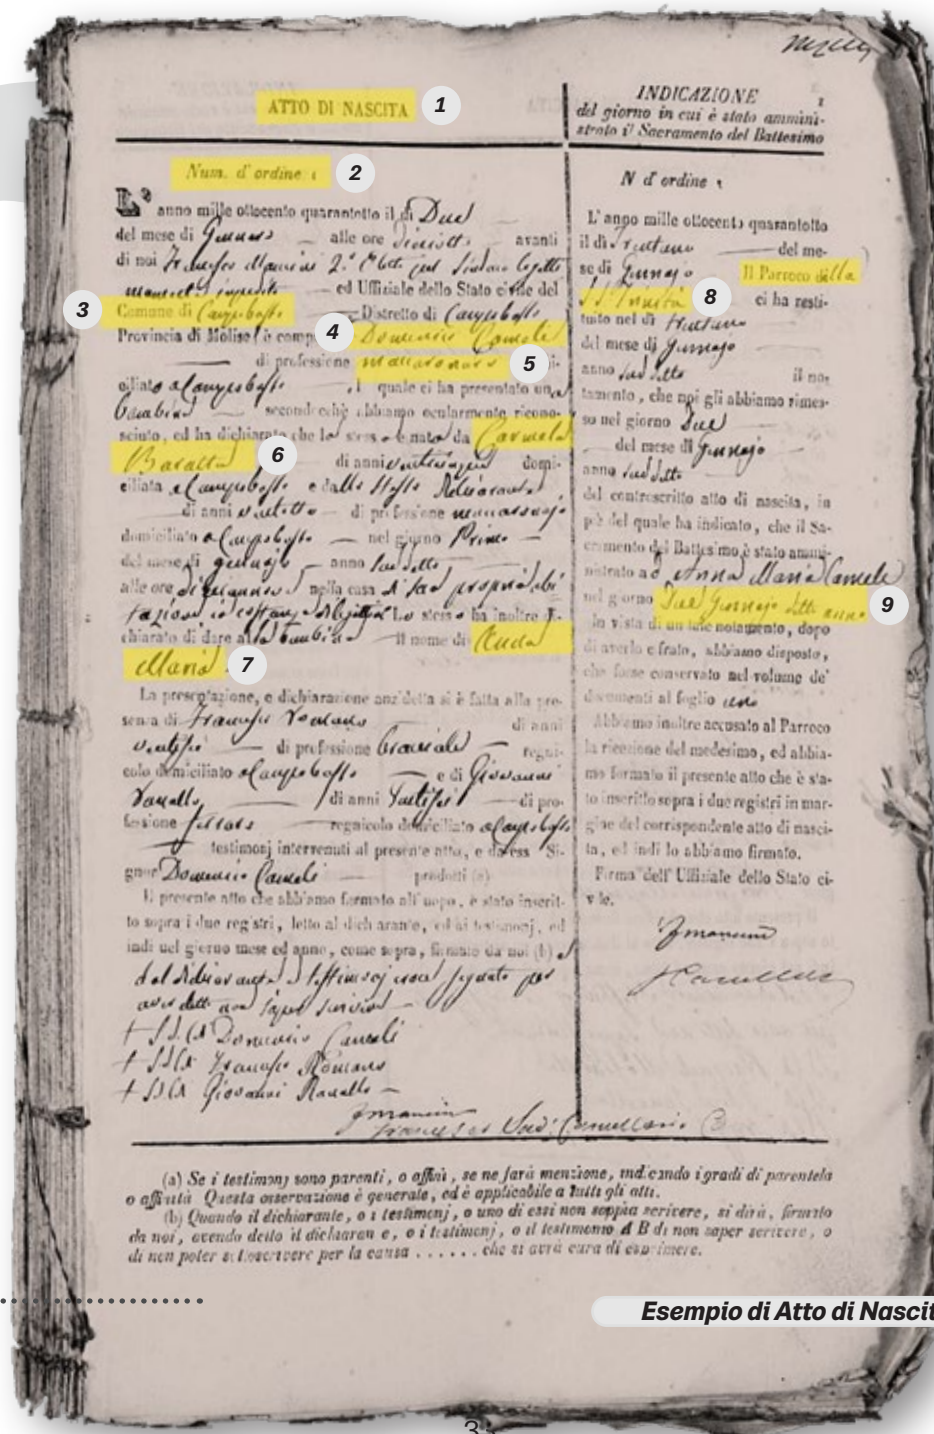 ATTO DI NASCITA
1
Num. d' ordine 1
2
L' anno mille ottocento quarantotto il di Due
del mese di Gennaro alle ore diciotto avanti
di noi Francesco Mancini 2.° Eletto pel Sindaco
impedito ed Uffiziale dello Stato civile del
3
Comune di Campobasso Distretto di Campobasso
Provincia di Molise, è comp
4
Domenico Camele
di professione maccaronaro
5
ciliato a Campobasso, il quale ci ha presentato una
bambina secondochè abbiamo ocularmente ricono-
sciuto, ed ha dichiarato che lo stesso è nato da Carmela
Baratta
6
di anni venticinque domi-
ciliata a Campobasso e dallo stesso Dichiarante
di anni ventotto di professione maccaronajo
domiciliato a Campobasso nel giorno Primo
del mese di gennajo anno suddetto
alle ore nella casa di sua propria abi
tazione Lo stesso ha inoltre di-
chiarato di dare alla bambina il nome di Anna
Maria
7
La presentazione, e dichiarazione anzidetta si è fatta alla pre-
senza di Francesco Romano di anni
ventisei di professione bracciale regni-
colo domiciliato a Campobasso e di Giovanni
Ranallo di anni di pro-
fessione ferraro regnicolo domiciliato a Campobasso
testimonj intervenuti al presente atto, e da esso Si-
gnor Domenico Camele prodotti (a)
Il presente atto che abbiamo formato all' uopo, è stato inscrit-
to sopra i due registri, letto al dichiarante, ed ai testimonj, ed
indi nel giorno mese ed anno, come sopra, firmato da noi (b)
dal dichiarante e testimonj non segnato per
aver detto non saper scrivere
Domenico Camele
Francesco Romano
Giovanni Ranallo
FMancini
INDICAZIONE
1
del giorno in cui è stato ammini-
strato il Sacramento del Battesimo
N d' ordine 1
L' anno mille ottocento quarantotto
il di Trentuno del me-
se di Gennajo Il Parroco della
SS. Trinità
8
ci ha resti-
tuito nel di trentuno
del mese di Gennajo
anno suddetto il no-
tamento, che noi gli abbiamo rimes-
so nel giorno Due
del mese di Gennajo
anno suddetto
del controscritto atto di nascita, in
piè del quale ha indicato, che il Sa-
cramento del Battesimo è stato ammi-
nistrato ad Anna Maria Camele
nel giorno Due Gennajo detto anno
9
In vista di un tale notamento, dopo
di averlo cifrato, abbiamo disposto,
che fosse conservato nel volume de'
documenti al foglio uno
Abbiamo inoltre accusato al Parroco
la ricezione del medesimo, ed abbia-
mo formato il presente atto che è sta-
to inscritto sopra i due registri in mar-
gine del corrispondente atto di nasci-
ta, ed indi lo abbiamo firmato.
Firma dell' Uffiziale dello Stato ci-
vile.
FMancini
(a) Se i testimonj sono parenti, o affini, se ne farà menzione, indicando i gradi di parentela
o affinità Questa osservazione è generale, ed è applicabile a tutti gli atti.
(b) Quando il dichiarante, o i testimonj, o uno di essi non sappia scrivere, si dirà, firmato
da noi, avendo detto il dichiarante, o i testimonj, o il testimonio A B di non saper scrivere, o
di non poter sottoscrivere per la causa ...... che si avrà cura di esprimere.
Esempio di Atto di Nascit
3